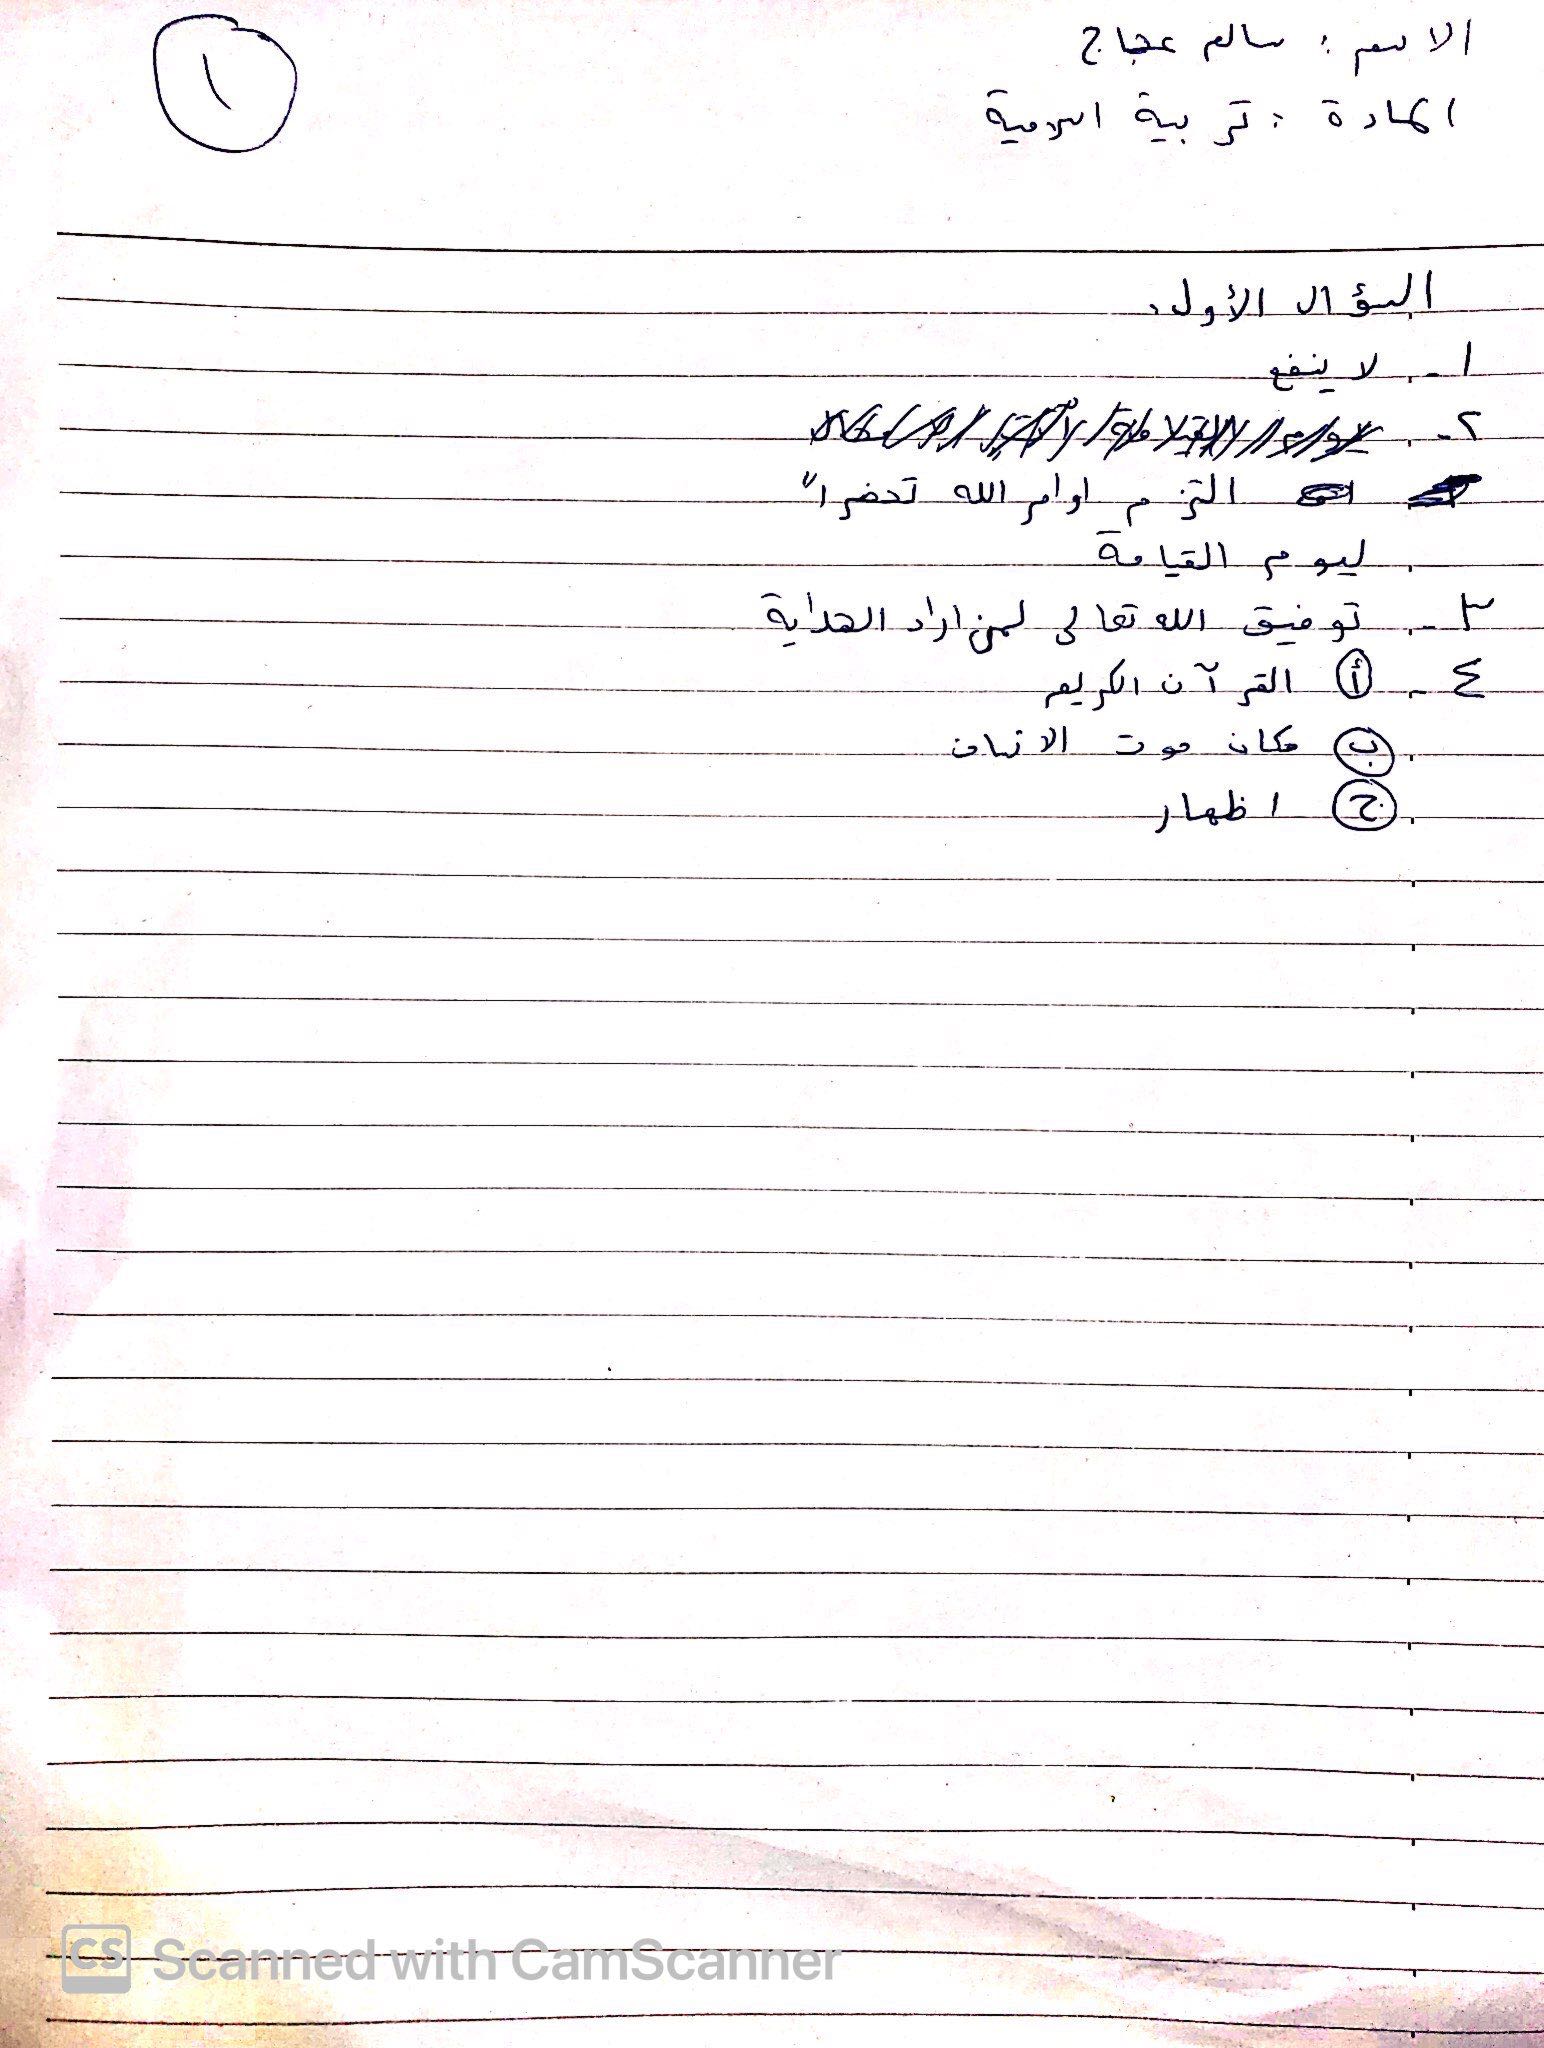 الاسم : سالم عجاج
المادة : تربية اسلامية
١
السؤال الأول.
١- لا ينفع
٢-
التزم اوامر الله تحضراً
ليوم القيامة
٣- توفيق الله تعالى لمن اراد الهداية
٤- أ القرآن الكريم
ب مكان موت الانسان
ج اظهار
CS Scanned with CamScanner